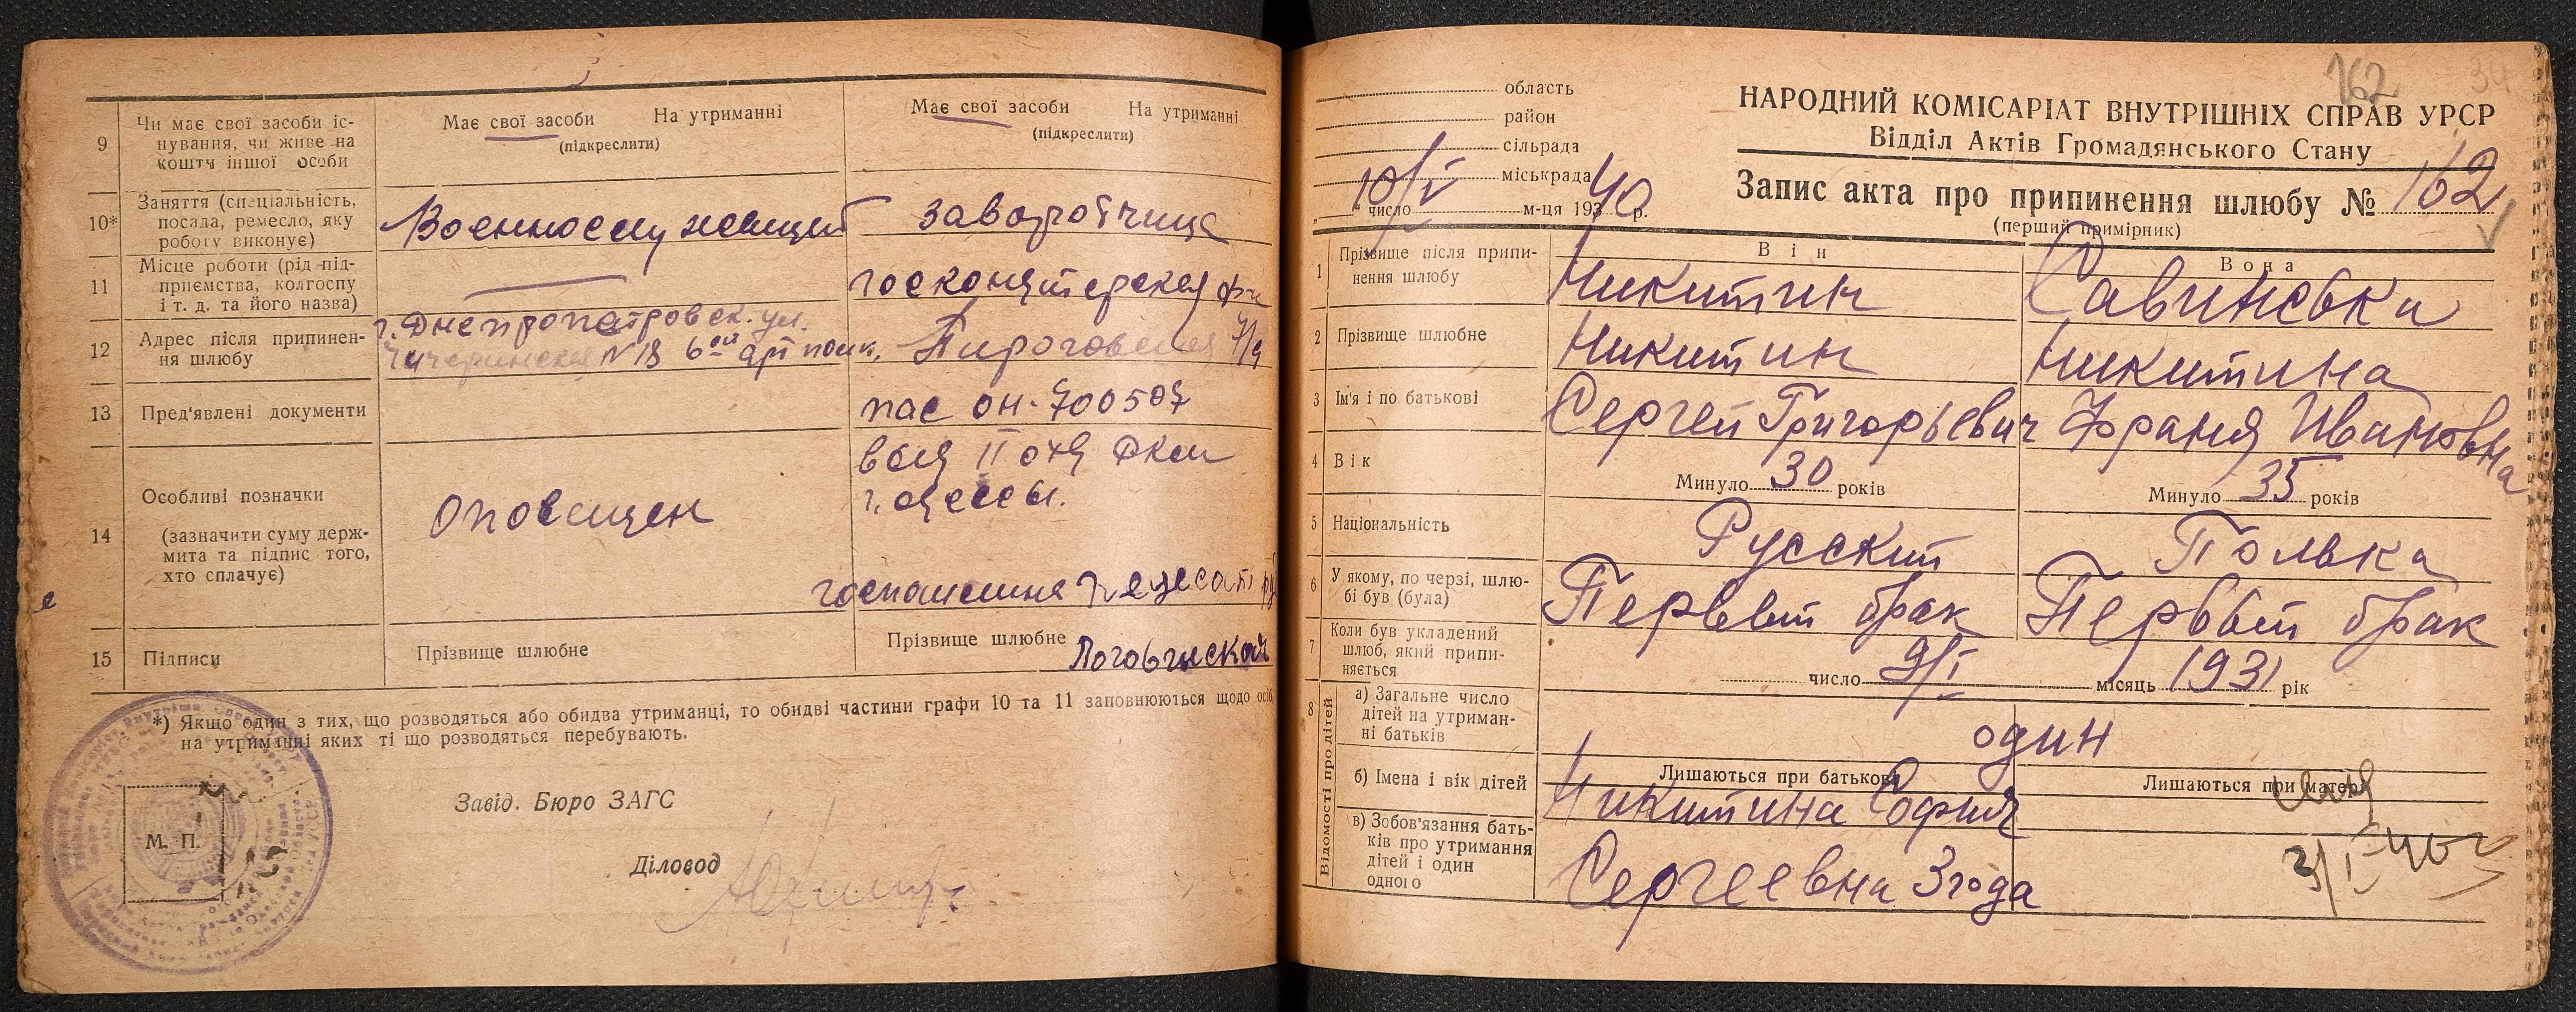 9
Чи має свої засоби іс-
нування, чи живе на
кошти іншої особи
Має свої засоби На утриманні
(підкреслити)
Має свої засоби На утриманні
(підкреслити)
10*
Заняття (спеціальність,
посада, ремесло, яку
роботу виконує)
Военнослужащий
заворотчица
11
Місце роботи (рід під-
приємства, колгоспу
і т. д. та його назва)
12
Адрес після припинен-
ня шлюбу
г. Днепропетровск. ул.
Чичеринская N 18 6ой арт полк.
Пироговская 7/9
13
Пред'явлені документи
пас ОН-700507
г. Одессы.
14
Особливі позначки
(зазначити суму держ-
мита та підпис того,
хто сплачує)
оповещен
госпошлина
15
Підписи
Прізвище шлюбне
Прізвище шлюбне
*) Якщо один з тих, що розводяться або обидва утриманці, то обидві частини графи 10 та 11 заповнюються щодо осіб,
на утриманні яких ті що розводяться перебувають.
М. П.
Завід. Бюро ЗАГС
Діловод
162
34
область
район
сільрада
міськрада
10/V 40
„ “ число м-ця 193 р.
НАРОДНИЙ КОМІСАРІАТ ВНУТРІШНІХ СПРАВ УРСР
Відділ Актів Громадянського Стану
Запис акта про припинення шлюбу № 162
(перший примірник)
Він
Вона
1
Прізвище після припи-
нення шлюбу
Никитин
2
Прізвище шлюбне
Никитин
Никитина
3
Ім'я і по батькові
Сергей Григорьевич
Франя Ивановна
4
Вік
Минуло 30 років
Минуло 35 років
5
Національність
Русский
Полька
6
У якому, по черзі, шлю-
бі був (була)
Первый брак
Первый брак
7
Коли був укладений
шлюб, який припи-
няється
число 9/I місяць 1931 рік
8
Відомості про дітей
а) Загальне число
дітей на утриман-
ні батьків
один
б) Імена і вік дітей
Лишаються при батькові
Лишаються при матері
Никитина София
в) Зобов'язання бать-
ків про утримання
дітей і один
одного
Сергеевна 3 года